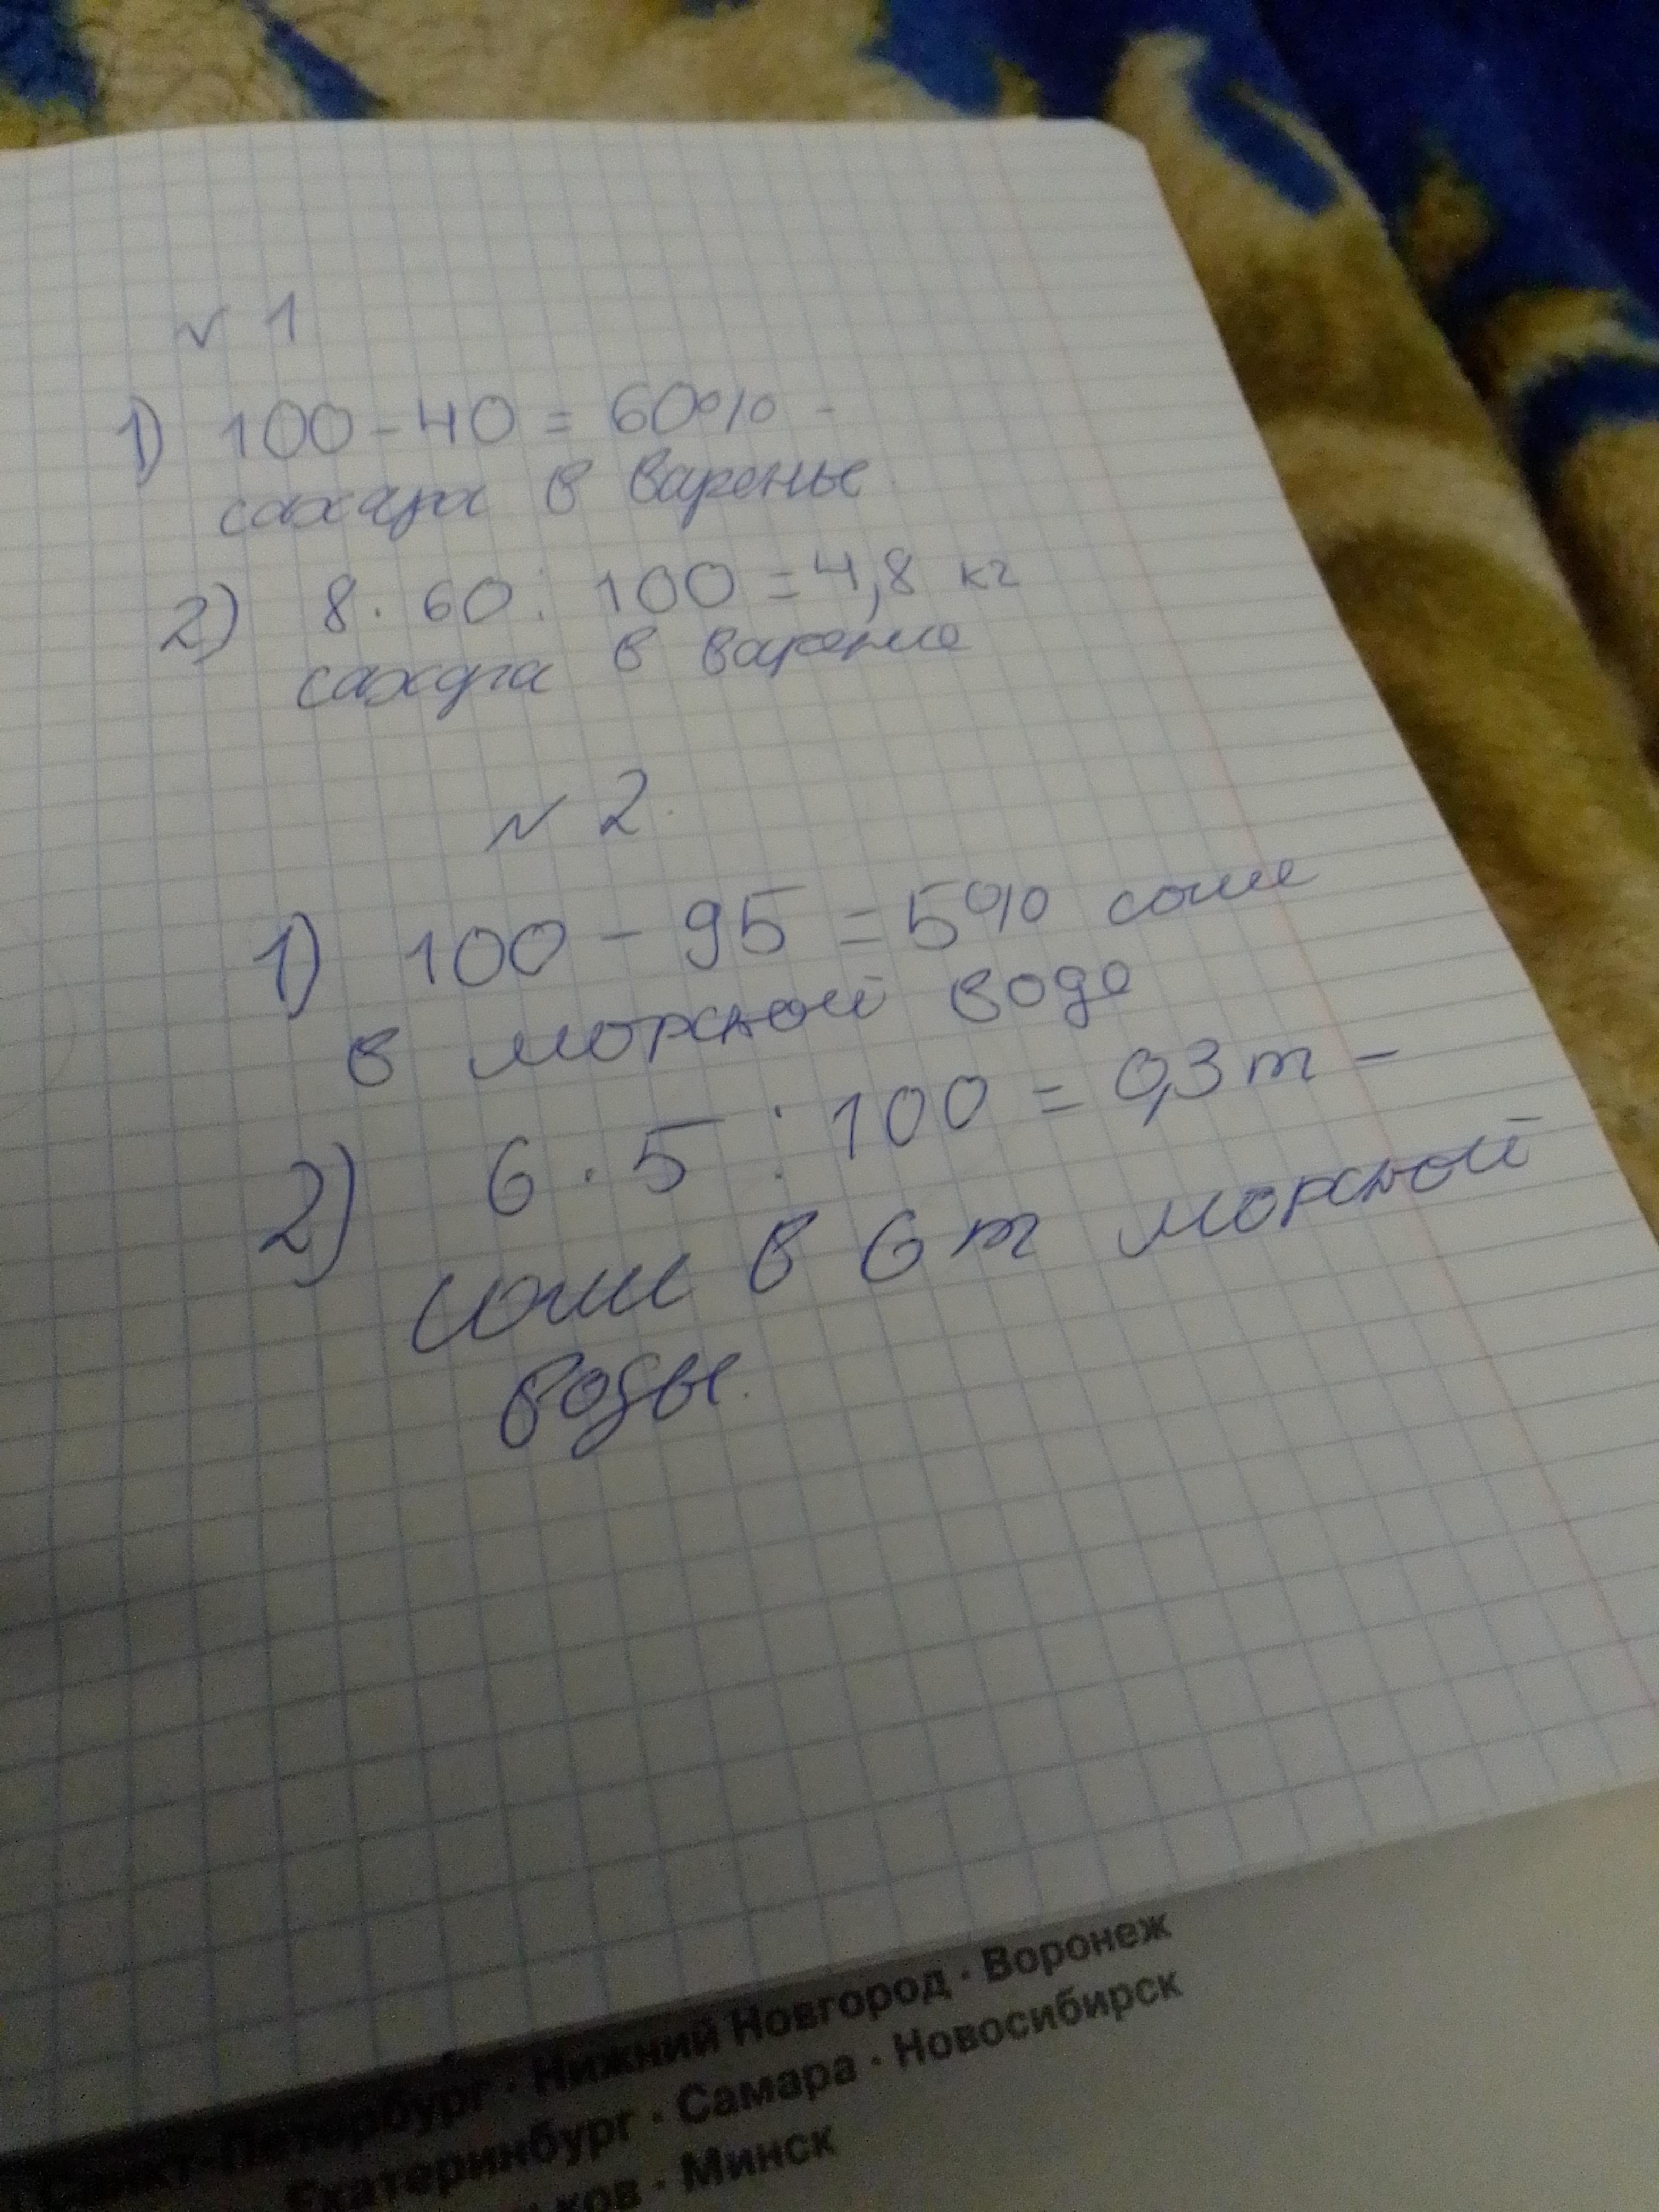 № 1
1) 100 - 40 = 60% -
сахара в варенье
2) 8 · 60 : 100 = 4,8 кг
сахара в варенье
№ 2.
1) 100 - 95 = 5% соли
в морской воде
2) 6 · 5 : 100 = 0,3 т -
соли в 6 т морской
воды.
Санкт-Петербург · Нижний Новгород · Воронеж
Екатеринбург · Самара · Новосибирск
· Минск